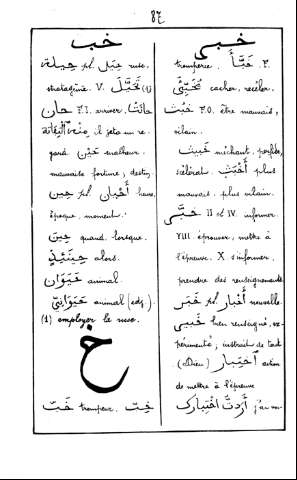 87
خب
حيلة pl. حِيَل ruse,
stratagème. V. تَحَيَّل (1)
حان F.I. arriver.
il jeta un re-
gard. حَيْن malheur.
mauvaise fortune; destin.
حِين pl. أَحْيان heure,
époque, moment.
حِينَ quand. lorsque.
حِينَئِذٍ alors.
حَيَوَان animal
حَيَوَانِيّ animal (adj.)
(1) employer la ruse.
خ
خَبّ trompeur. خِبّ
خبى
tromperie. خَبَّأَ F.
cacher, recéler.
خَبُثَ F.O. être mauvais,
vilain.
خَبِيث méchant. perfide,
scélérat. أَخْبَث plus
mauvais. plus vilain.
II et IV informer
VIII. éprouver, mettre à
l'épreuve. X s'informer.
prendre des renseignements
خَبَر pl. أَخْبار nouvelle.
bien renseigné, ex-
périmenté; instruit de tout
(Dieu) اخْتِبار action
de mettre à l'épreuve
أَرَدْتُ اخْتِبارك j'ai vou-